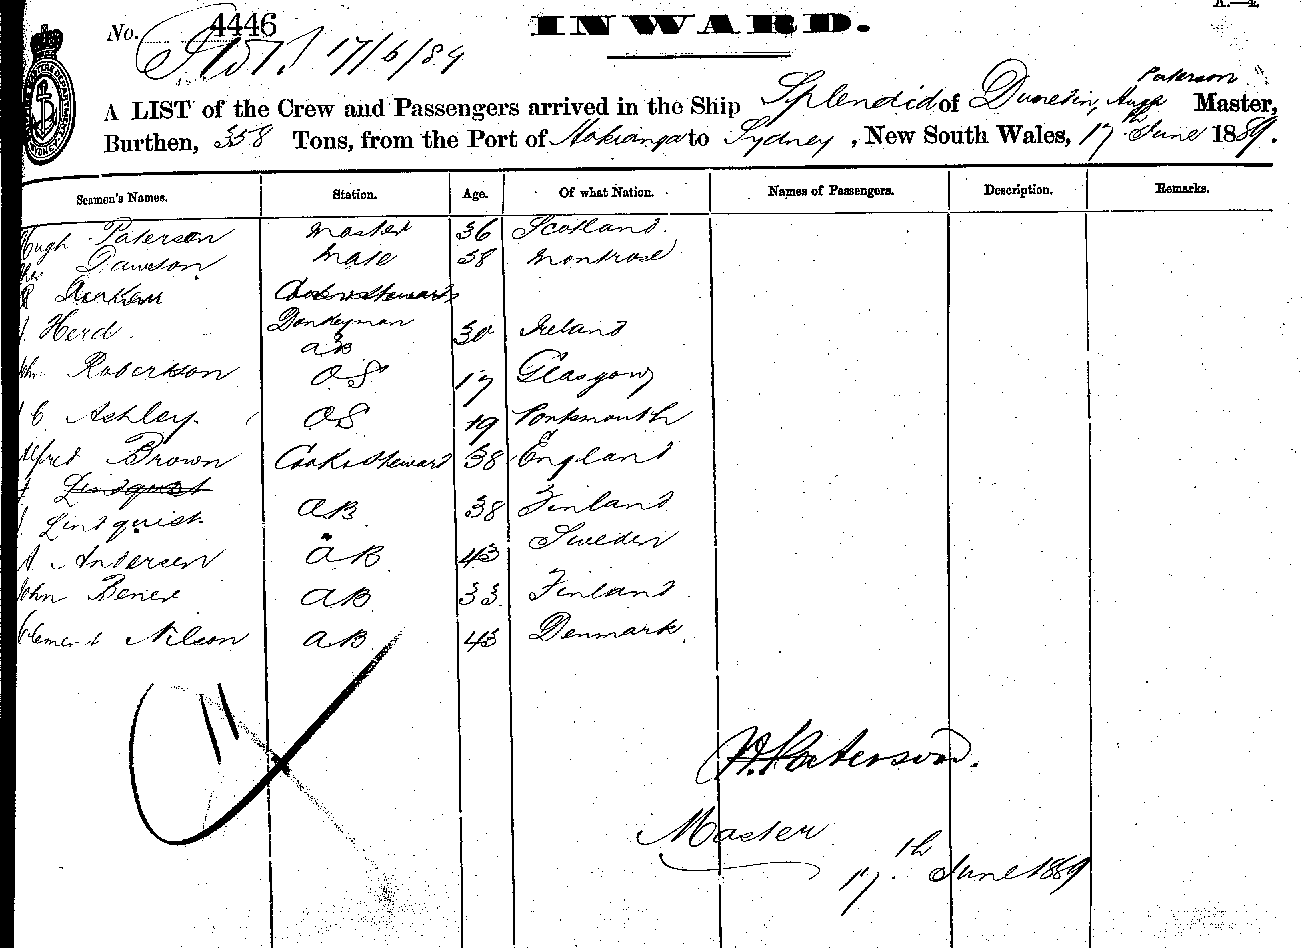 A.—4.
No. 4446 INWARD.
17/6/89
Paterson
A LIST of the Crew and Passengers arrived in the Ship Splendid of Dunedin, Hugh Master,
Burthen, 358 Tons, from the Port of Hokianga to Sydney, New South Wales, 17th June 1889.
Seamen's Names. Station. Age. Of what Nation. Names of Passengers. Description. Remarks.
Hugh Paterson Master 36 Scotland.
Dawson Mate 38 Montrose
Cook & Steward
Herd Donkeyman 30 Ireland
AB
John Robertson OS 17 Glasgow
C Ashley. OS 19 Portsmouth
Alfred Brown Cook & Steward 38 England
Lindquist
Lindquist. AB 38 Finland
A Andersen AB 43 Sweden
John Bener AB 33 Finland
Clement Nilson AB 43 Denmark.
11
H. Paterson.
Master
17th June 1889